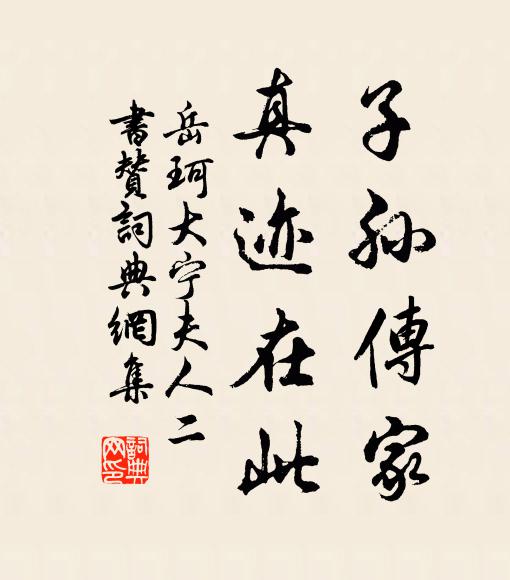 子孫傳家
真迹在此
岳珂大宁夫人二
書贊詞典網集
詞典網印